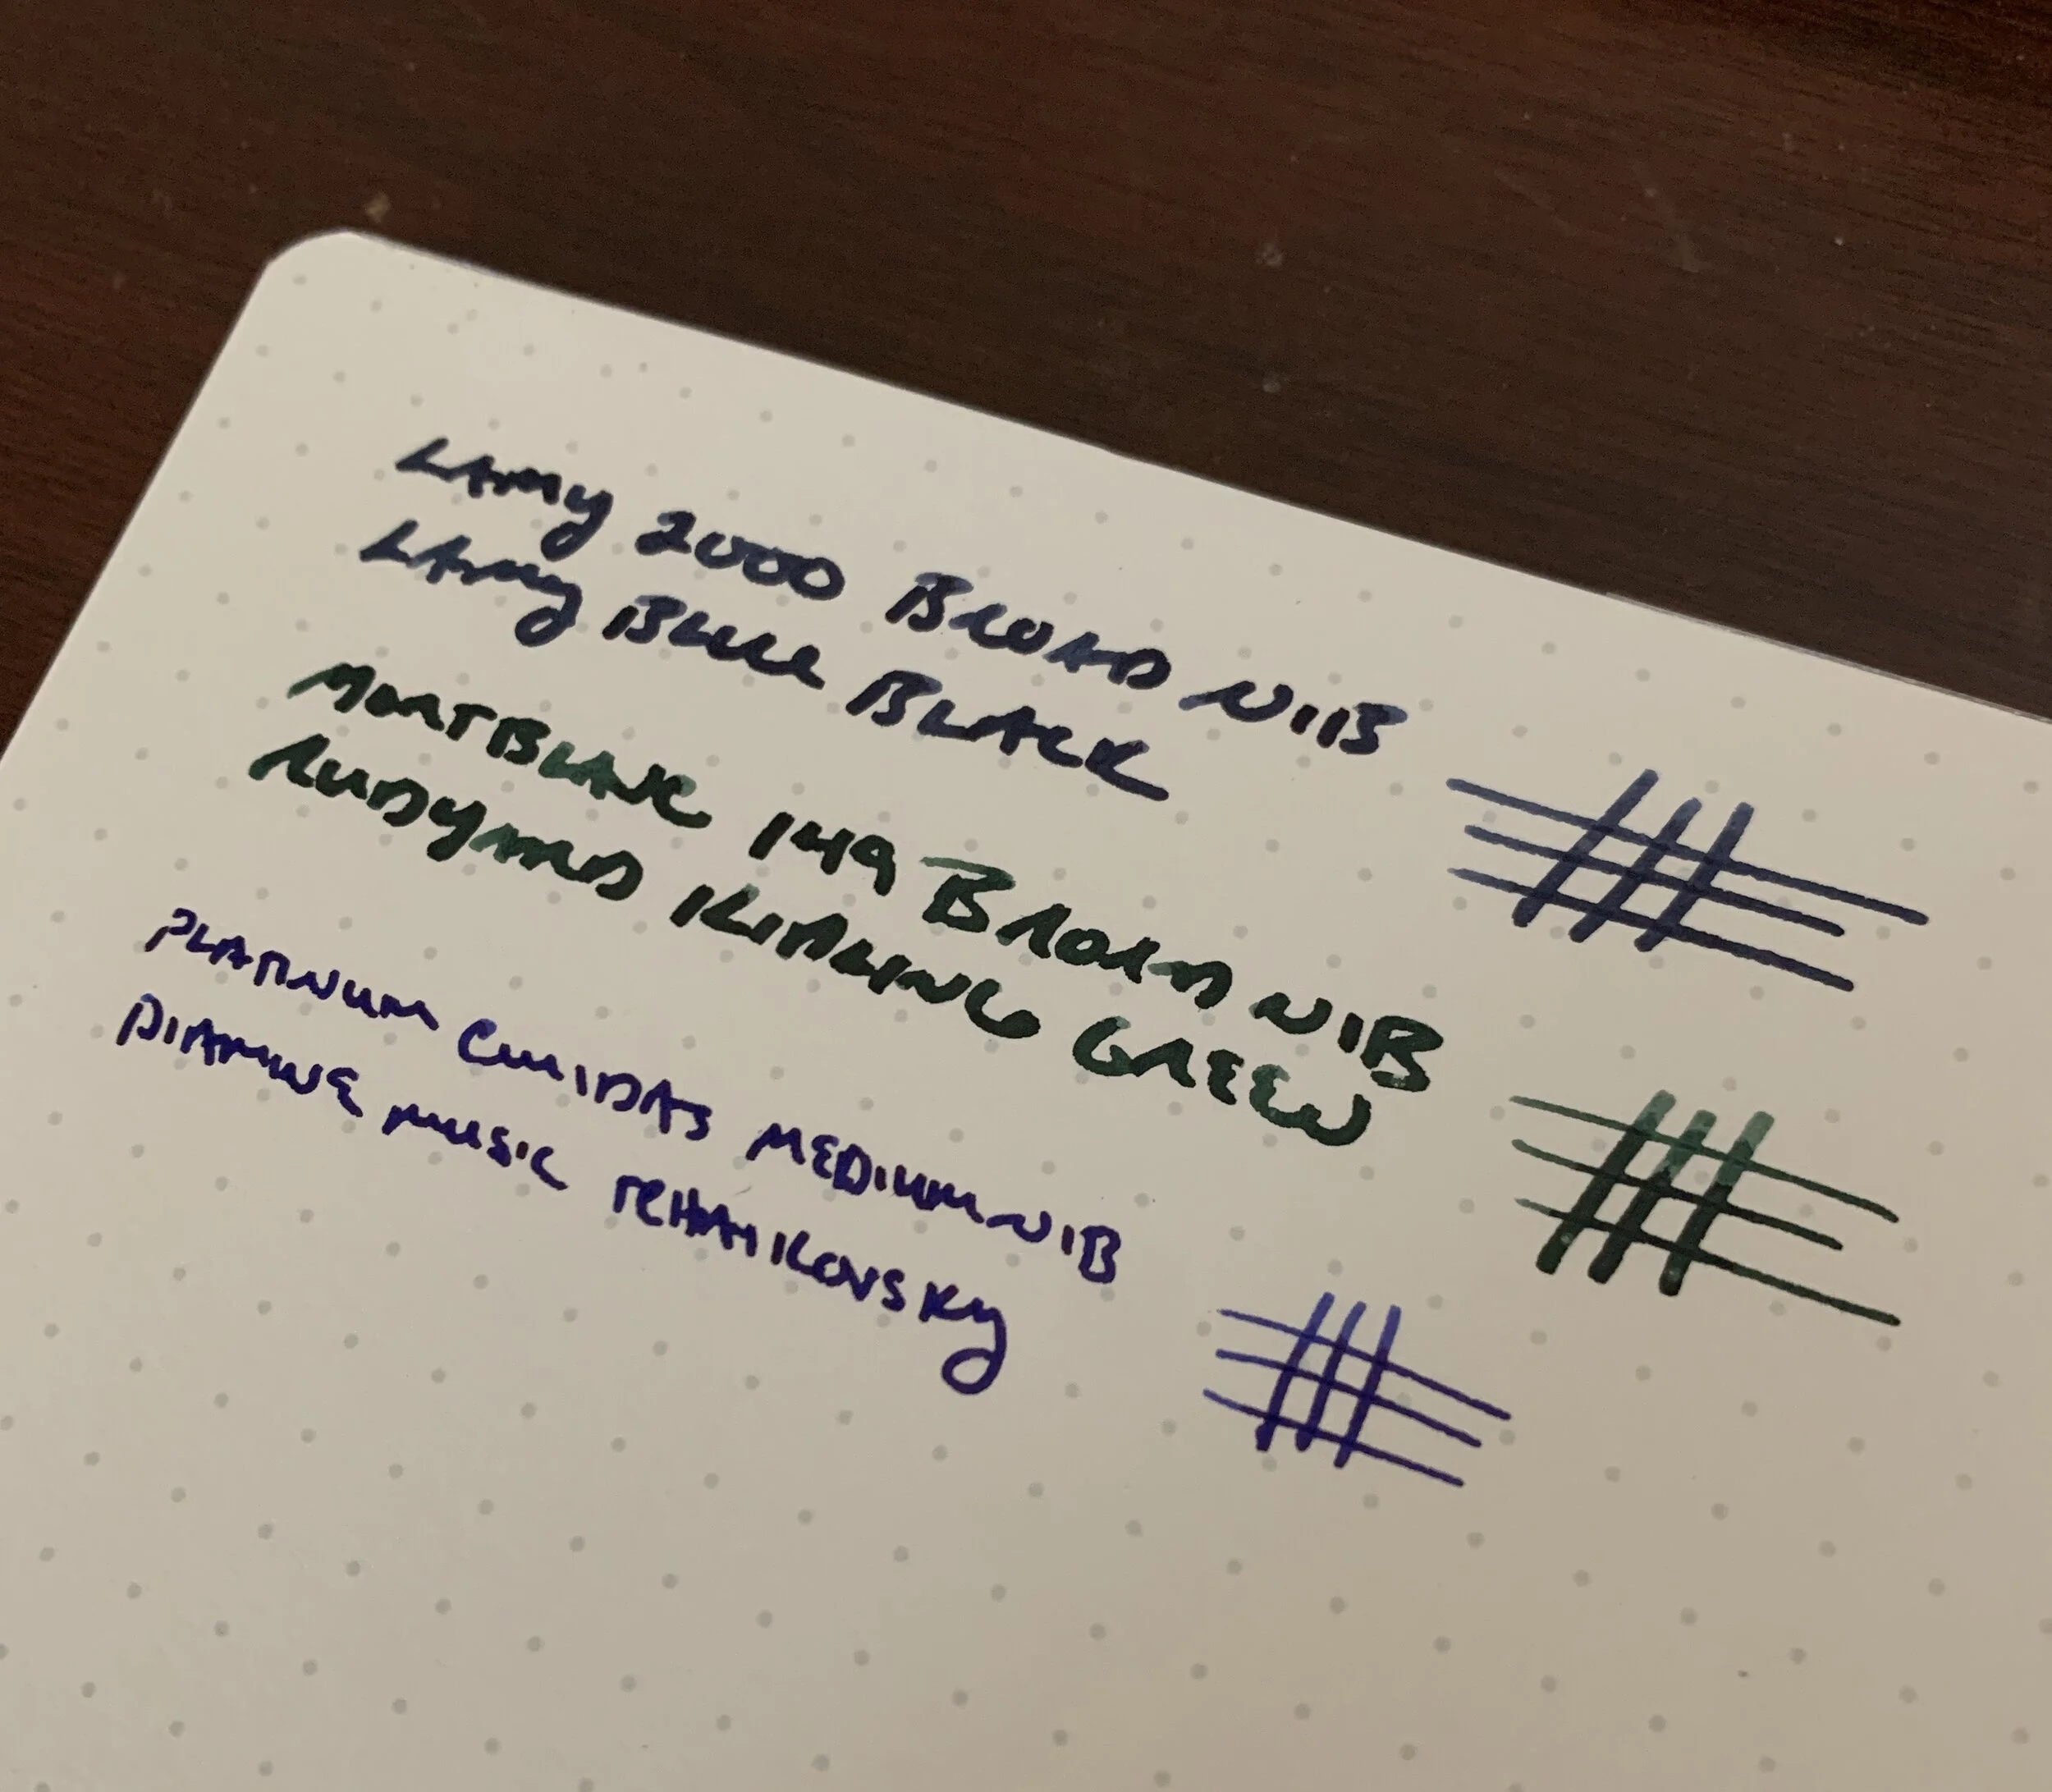 LAMY 2000 BROAD NIB
LAMY BLUE BLACK
MONTBLANC 149 BROAD NIB
RUDYARD KIPLING GREEN
PLATINUM CURIDAS MEDIUM NIB
DIAMINE MUSIC TCHAIKOVSKY